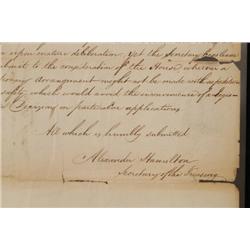 upon mature deliberation, yet the Secretary begs leave
submit to the consideration of the House, whether a
porary arrangement might not be made with expedition
safety, which would avoid the inconvenience of a
Decision on particular applications
All which is humbly submitted
Alexander Hamilton
Secretary of the Treasury